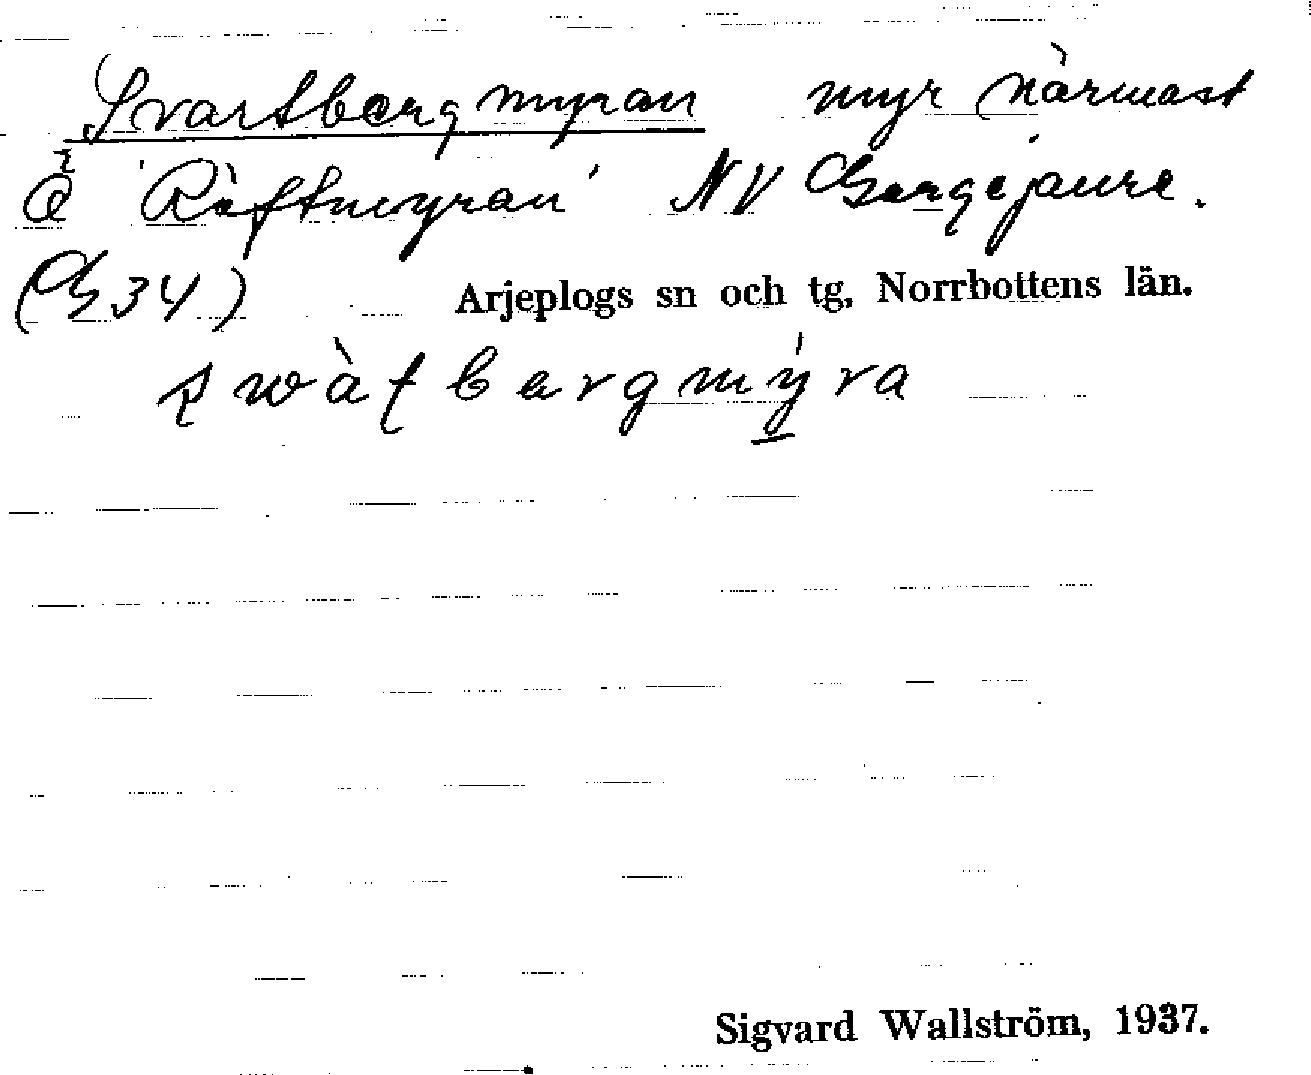 Svartbergmyran myr närmast
Ö 'Röftmyran' NV Gargejaure.
(G 34) Arjeplogs sn och tg, Norrbottens län.
swàtbergmýra
Sigvard Wallström, 1937.